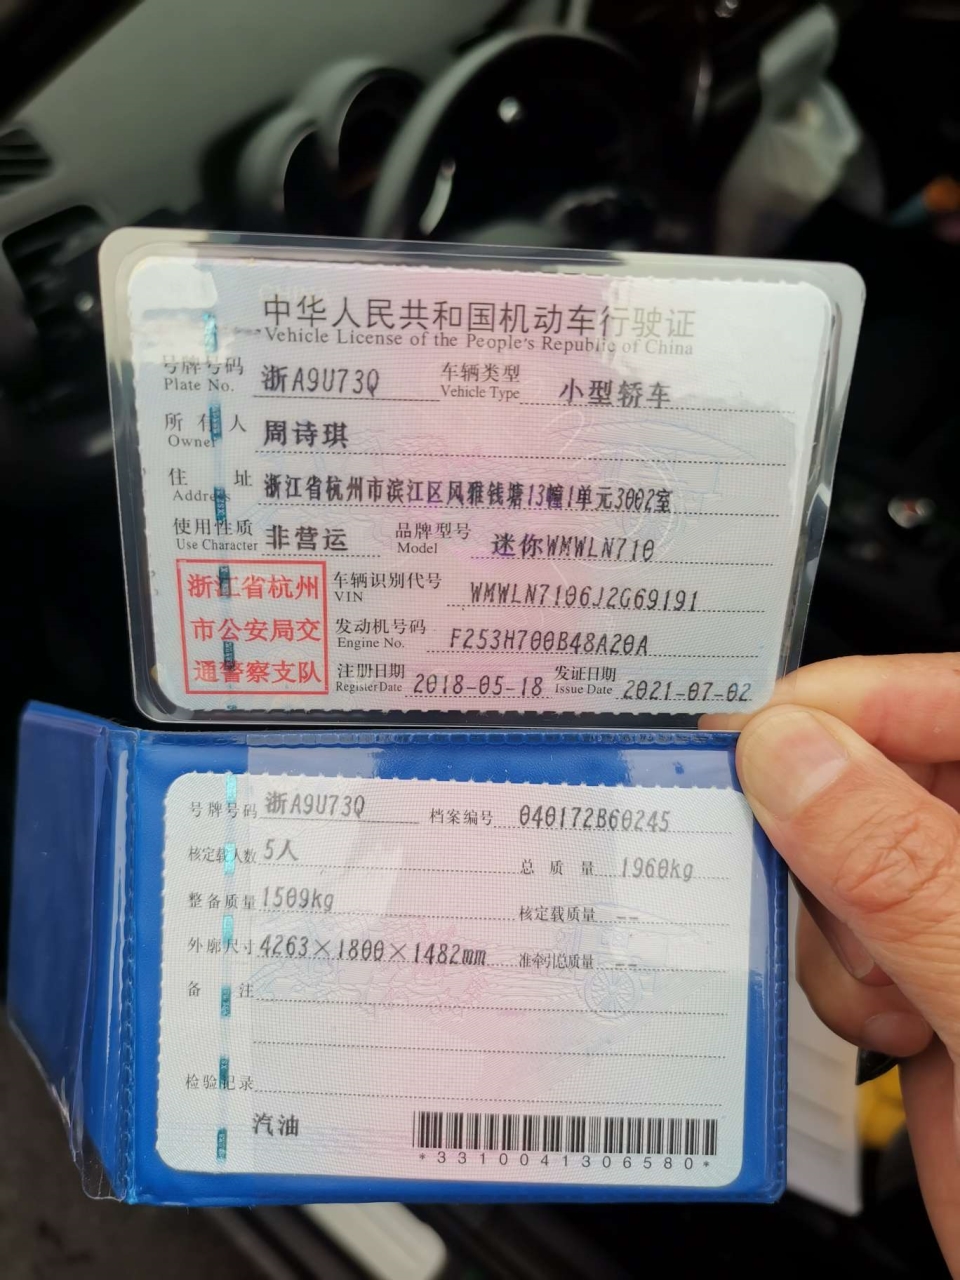 中华人民共和国机动车行驶证
Vehicle License of the People's Republic of China
号牌号码 浙A9U73Q 车辆类型 小型轿车
Plate No. Vehicle Type
所有人 周诗琪
Owner
住址 浙江省杭州市滨江区风雅钱塘13幢1单元3002室
Address
使用性质 非营运 品牌型号 迷你WMWLN710
Use Character Model
浙江省杭州
市公安局交
通警察支队
车辆识别代号 WMWLN7106J2G69191
VIN
发动机号码 F253H700B48A20A
Engine No.
注册日期 2018-05-18 发证日期 2021-07-02
Register Date Issue Date
号牌号码 浙A9U73Q 档案编号 040172B60245
核定载人数 5人 总质量 1960kg
整备质量 1509kg 核定载质量 --
外廓尺寸 4263×1800×1482mm 准牵引总质量 --
备注
检验记录
汽油
*3310041306580*